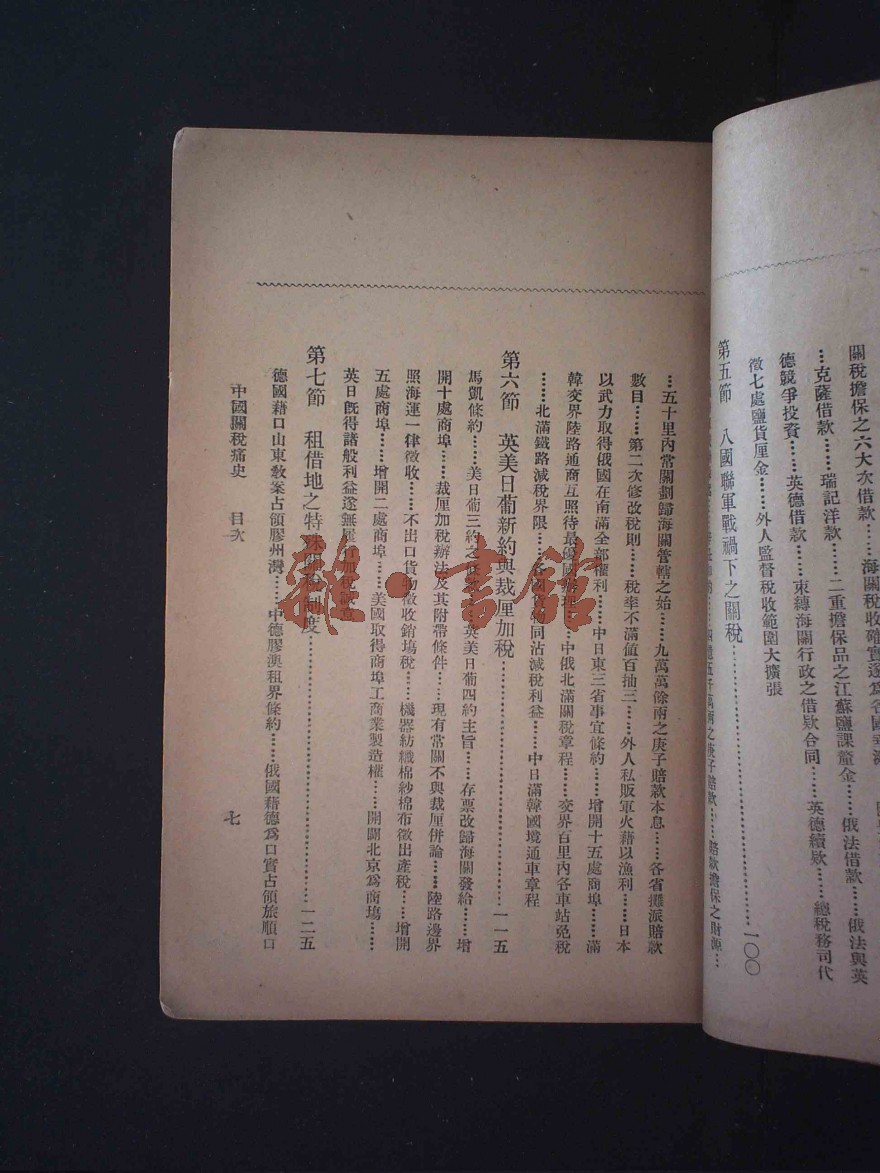 關稅擔保之六大次借款……海關稅收確實遂爲各國
…克薩借款……瑞記洋款……二重擔保品之江蘇鹽課釐金……俄法借款……俄法與英
德競爭投資……英德借款……束縛海關行政之借款合同……英德續款……總稅務司代
徵七處鹽貨厘金……外人監督稅收範圍大擴張
第五節 八國聯軍戰禍下之關稅……一〇〇
四萬五千萬兩之庚子賠款……賠款擔保之財源…
…五十里內常關劃歸海關管轄之始……九萬萬餘兩之庚子賠款本息……各省攤派賠款
數目……第二次修改稅則……稅率不滿值百抽三……外人私販軍火藉以漁利……日本
以武力取得俄國在南滿全部權利……中日東三省事宜條約……增開十五處商埠……滿
韓交界陸路通商互照待最優國辦理……中俄北滿關稅章程……交界百里內各車站免稅
……北滿鐵路減稅界限……各國貨物同沾減稅利益……中日滿韓國境通車章程
第六節 英美日葡新約與裁厘加稅……一一五
馬凱條約……美日葡三約之……英美日葡四約主旨……存票改歸海關發給……增
開十處商埠……裁厘加稅辦法及其附帶條件……現有常關不與裁厘併論……陸路邊界
照海運一律徵收……不出口貨物徵收銷塲稅……機器紡織棉紗棉布徵出產稅……增開
五處商埠……增開二處商埠……美國取得商埠工商業製造權……開闢北京爲商塲……
英日旣得諸般利益遂無厘加稅
第七節 租借地之特殊關稅制度……一二五
德國藉口山東敎案占領膠州灣……中德膠澳租界條約……俄國藉德爲口實占領旅順口
中國關稅痛史 目次 七
雜·書館